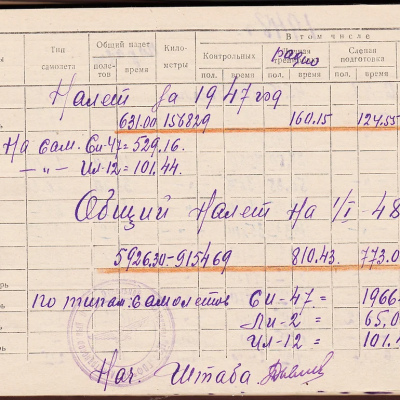 В том числе
Тип самолета Общий налет Кило-метры Контрольных Слепая подготовка
радио
поле-тов время пол. время пол. время пол. время
Налет за 1947 год
631.00 156829 160.15 124.55
На сам. Си-47 = 529.16.
—„— Ил-12 = 101.44.
Общий налет на 1/I 48
5926.30 - 915469 810.43. 773.0
по типам: самолетов Си-47 = 1966
Ли-2 = 65,0
Ил-12 = 101.
Нач. Штаба